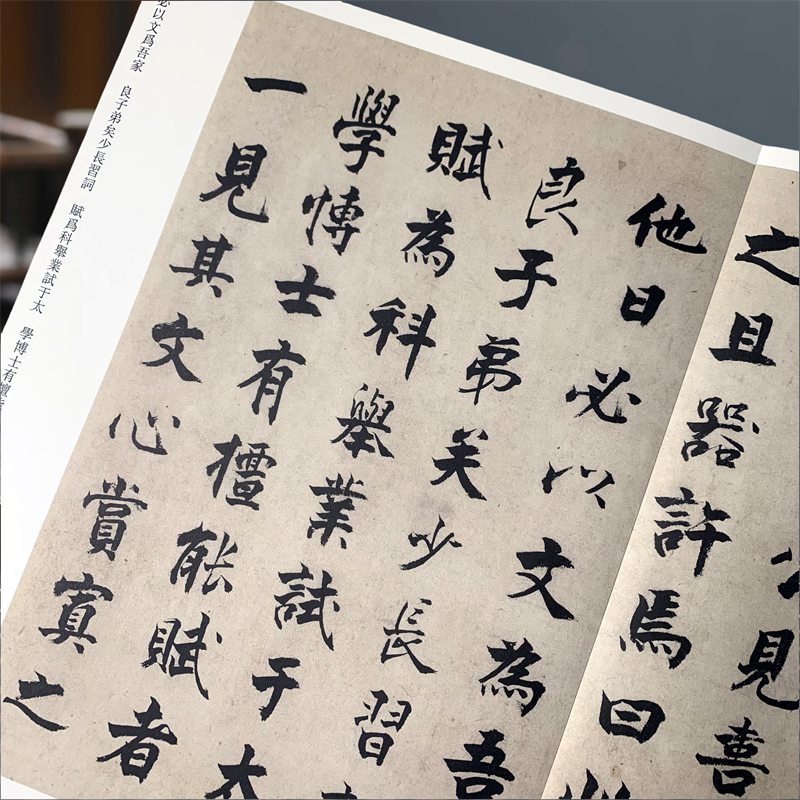 見喜
之且器許焉曰
他日必以文為吾
良子弟矣少長習
賦為科舉業試于太
學愽士有檀能賦者
一見其文心賞寘之
必以文爲吾家 良子弟矣少長習詞 賦爲科舉業試于太 學博士有檀